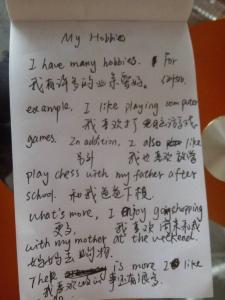 My Hobbies
I have many hobbies. For
我有许多的业余爱好。
example, I like playing computer
我喜欢打电脑游戏
games. In addition, I also like
另外 我也喜欢放学
play chess with my father after
school. 和我爸爸下棋
What's more, I enjoy go shopping
更多, 我喜欢周末和我
with my mother at the weekend.
妈妈去购物.
There is more I like
我喜欢的事还有很多.